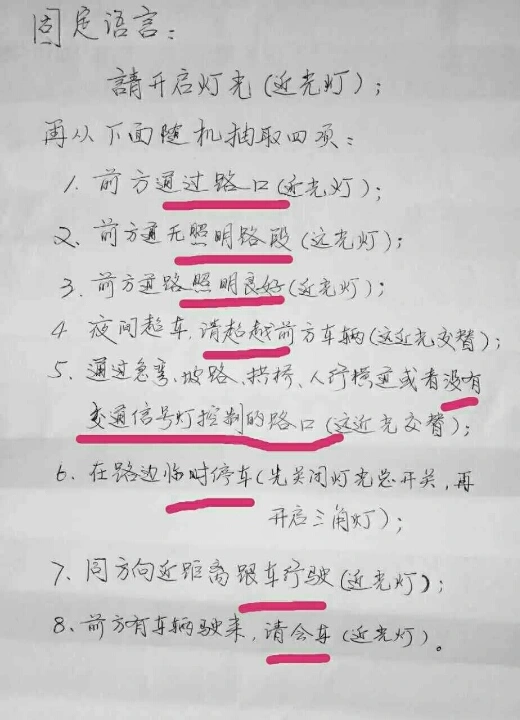 固定语言：
請开启灯光(近光灯)；
再从下面随机抽取四项：
1. 前方通过路口(近光灯)；
2、前方通无照明路段(远光灯)；
3、前方道路照明良好(近光灯)；
4 夜间超车,请超越前方车辆(远近光交替)；
5、通过急弯、坡路、拱桥、人行横道或者没有
交通信号灯控制的路口(远近光交替)；
6、在路边临时停车(先关闭灯光总开关，再
开启三角灯)；
7、同方向近距离跟车行驶(近光灯)；
8、前方有车辆驶来，请会车(近光灯)。